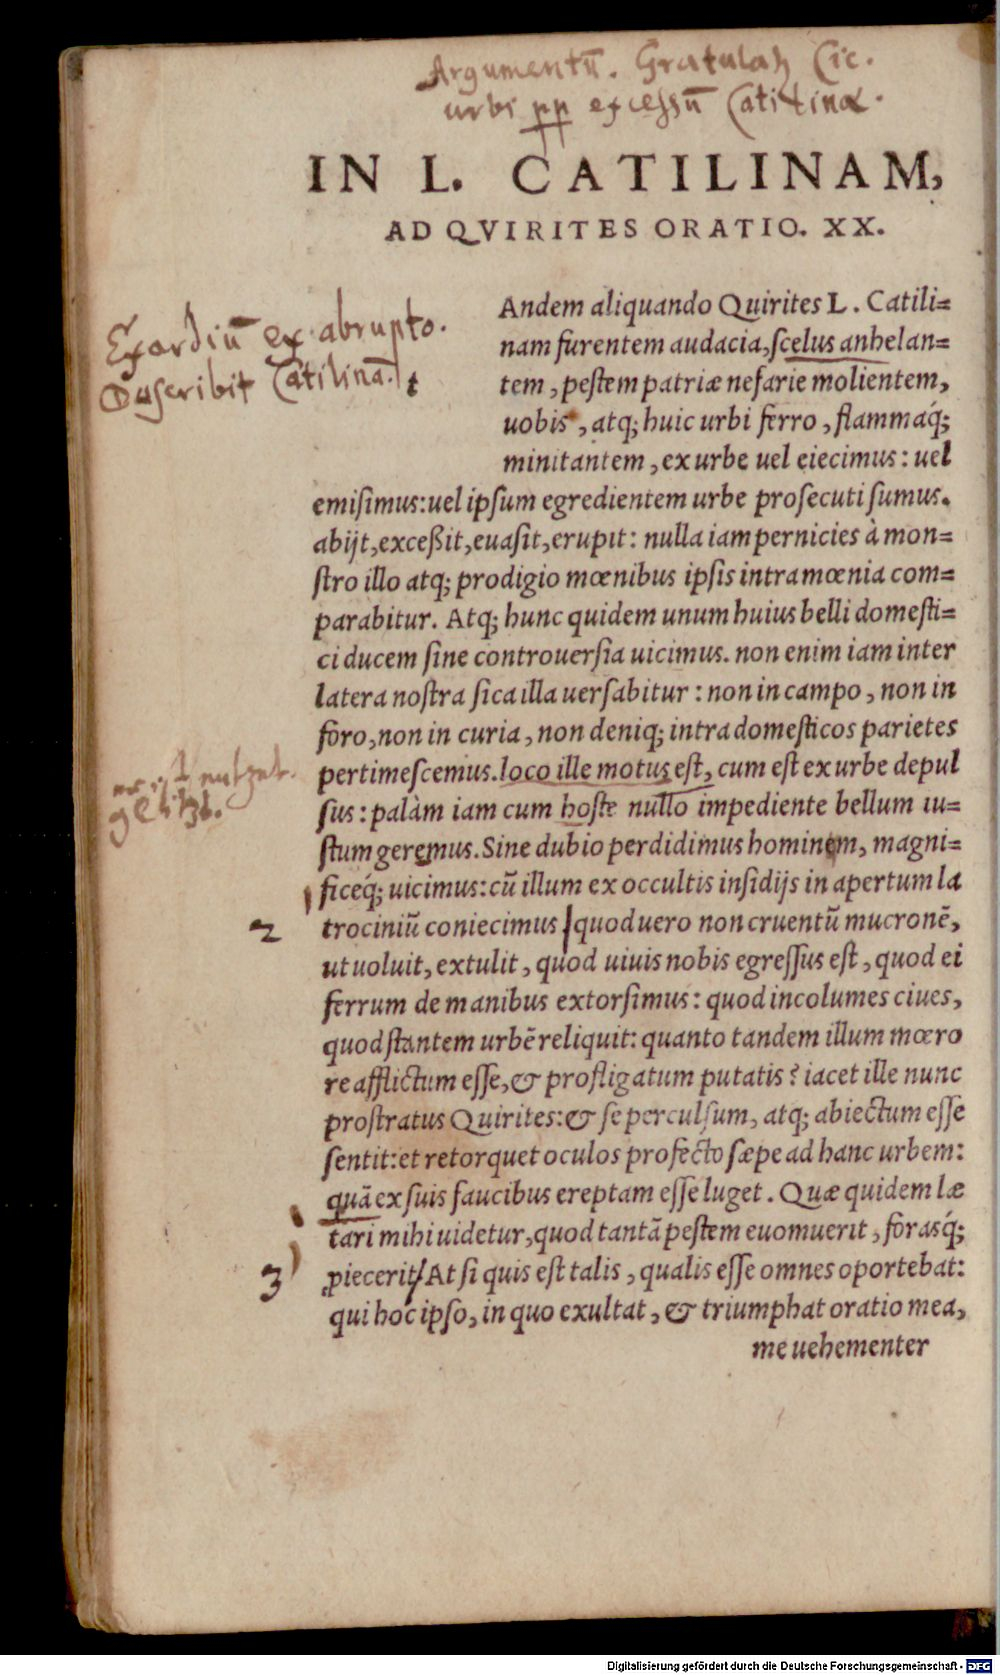 Argumentū. Gratulatᷣ Cic.
urbi pp excessū Catilinæ.
IN L. CATILINAM,
AD QVIRITES ORATIO. XX.
Exordiū ex abrupto.
Describit Catilinā.
Andem aliquando Quirites L. Catili=
nam furentem audacia, scelus anhelan=
tem, pestem patriæ nefarie molientem,
uobis, atq; huic urbi ferro, flammaq́;
minitantem, ex urbe uel eiecimus: uel
emisimus: uel ipsum egredientem urbe prosecuti sumus.
abijt, exceßit, euasit, erupit: nulla iam pernicies à mon=
stro illo atq; prodigio mœnibus ipsis intra mœnia com=
parabitur. Atq; hunc quidem unum huius belli domesti=
ci ducem sine controuersia uicimus. non enim iam inter
latera nostra sica illa uersabitur: non in campo, non in
foro, non in curia, non deniq; intra domesticos parietes
pertimescemus. loco ille motus est, cum est ex urbe depul
sus: palàm iam cum hoste nullo impediente bellum iu=
stum geremus. Sine dubio perdidimus hominem, magni=
ficeq́; uicimus: cū illum ex occultis insidijs in apertum la
2
trociniū coniecimus quod uero non cruentū mucronē,
ut uoluit, extulit, quod uiuis nobis egressus est, quod ei
ferrum de manibus extorsimus: quod incolumes ciues,
quod stantem urbē reliquit: quanto tandem illum mœro
re afflictum esse, & profligatum putatis? iacet ille nunc
prostratus Quirites: & se perculsum, atq; abiectum esse
sentit: et retorquet oculos profecto sæpe ad hanc urbem:
quā ex suis faucibus ereptam esse luget. Quæ quidem læ
tari mihi uidetur, quod tantā pestem euomuerit, forasq́;
3
piecerit/ At si quis est talis, qualis esse omnes oportebat:
qui hoc ipso, in quo exultat, & triumphat oratio mea,
me uehementer
Digitalisierung gefördert durch die Deutsche Forschungsgemeinschaft - DFG